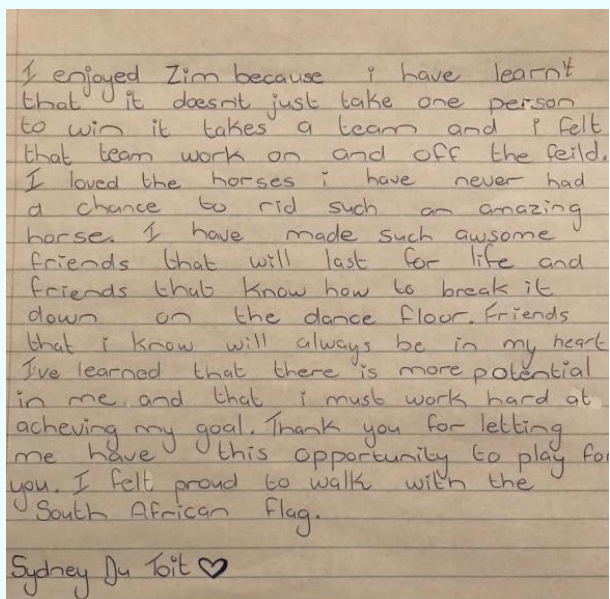 I enjoyed Zim because i have learn't
that it doesnt just take one person
to win it takes a team and i felt
that team work on and off the feild.
I loved the horses i have never had
a chance to rid such an amazing
horse. I have made such awsome
friends that will last for life and
friends that know how to break it
down on the dance floor. Friends
that i know will always be in my heart
I've learned that there is more potential
in me and that i must work hard at
acheving my goal. Thank you for letting
me have this opportunity to play for
you. I felt proud to walk with the
South African flag.
Sydney Du Toit ♡